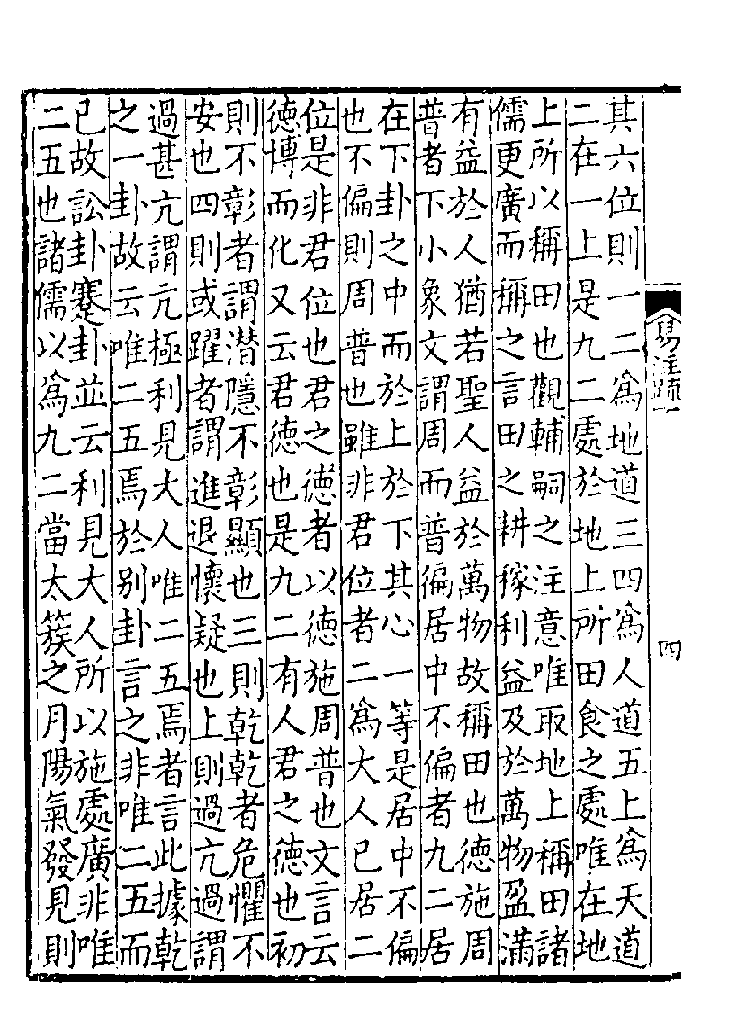 其六位則一二爲地道三四爲人道五上爲天道
二在一上是九二處於地上所田食之處唯在地
上所以稱田也觀輔嗣之注意唯取地上稱田諸
儒更廣而稱之言田之耕稼利益及於萬物盈滿
有益於人猶若聖人益於萬物故稱田也德施周
普者下小象文謂周而普徧居中不偏者九二居
在下卦之中而於上於下其心一等是居中不偏
也不偏則周普也雖非君位者二爲大人已居二
位是非君位也君之德者以德施周普也文言云
德博而化又云君德也是九二有人君之德也初
則不彰者謂潛隱不彰顯也三則乾乾者危懼不
安也四則或躍者謂進退懷疑也上則過亢過謂
過甚亢謂亢極利見大人唯二五焉者言此據乾
之一卦故云唯二五焉於别卦言之非唯二五而
已故訟卦蹇卦並云利見大人所以施處廣非唯
二五也諸儒以爲九二當太簇之月陽氣發見則
易注疏一
四